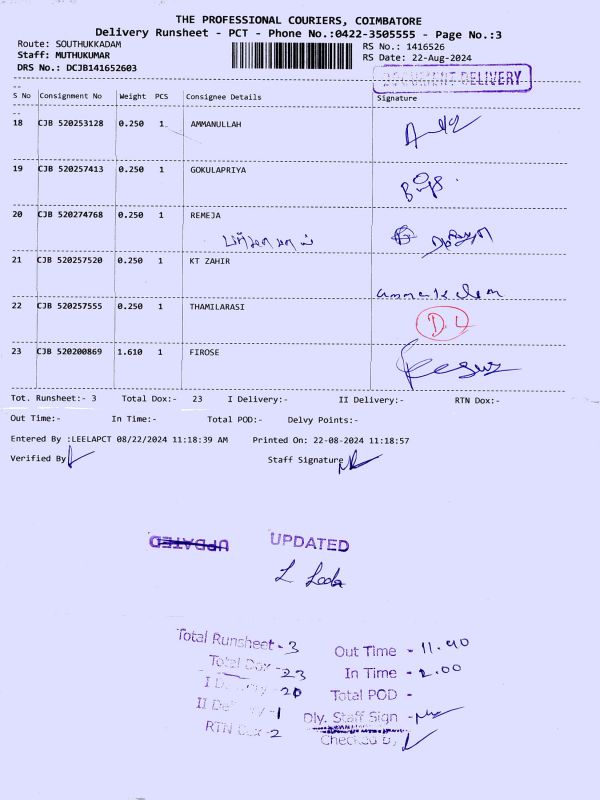 THE PROFESSIONAL COURIERS, COIMBATORE
Delivery Runsheet - PCT - Phone No.:0422-3505555 - Page No.:3
Route: SOUTHUKKADAM
RS No.: 1416526
Staff: MUTHUKUMAR
RS Date: 22-Aug-2024
DRS No.: DCJB141652603
DOCUMENT DELIVERY
S No Consignment No Weight PCS Consignee Details Signature
18 CJB 520253128 0.250 1 AMMANULLAH
19 CJB 520257413 0.250 1 GOKULAPRIYA
20 CJB 520274768 0.250 1 REMEJA
21 CJB 520257520 0.250 1 KT ZAHIR
22 CJB 520257555 0.250 1 THAMILARASI
D.L
23 CJB 520200869 1.610 1 FIROSE
Tot. Runsheet:- 3 Total Dox:- 23 I Delivery:- II Delivery:- RTN Dox:-
Out Time:- In Time:- Total POD:- Delvy Points:-
Entered By :LEELAPCT 08/22/2024 11:18:39 AM Printed On: 22-08-2024 11:18:57
Verified By Staff Signature
UPDATED UPDATED
Total Runsheet - 3 Out Time - 11.40
Total Dox - 23 In Time - 2.00
I Delivery - 20 Total POD -
II Delivery - 1 Dly. Staff Sign -
RTN Dox - 2 Checked By